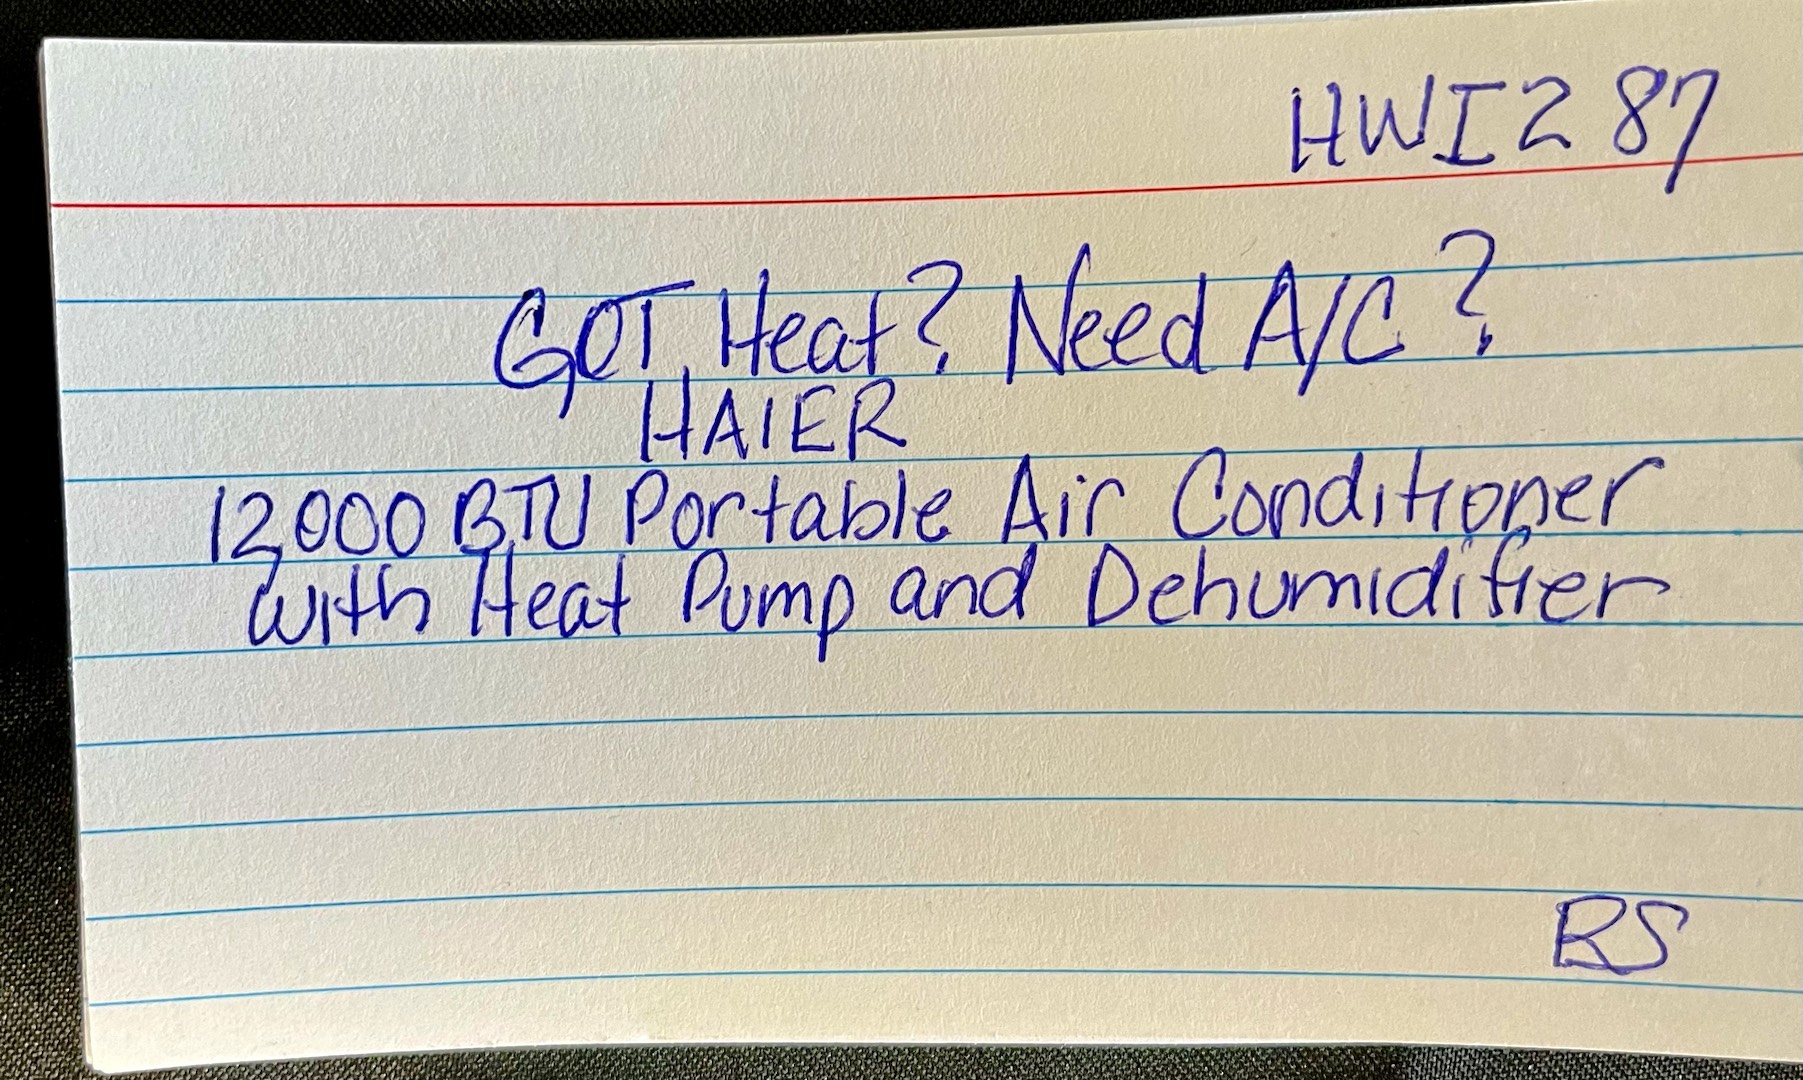 HWI287
GOT Heat? Need A/C?
HAIER
12,000 BTU Portable Air Conditioner
with Heat Pump and Dehumidifier
RS